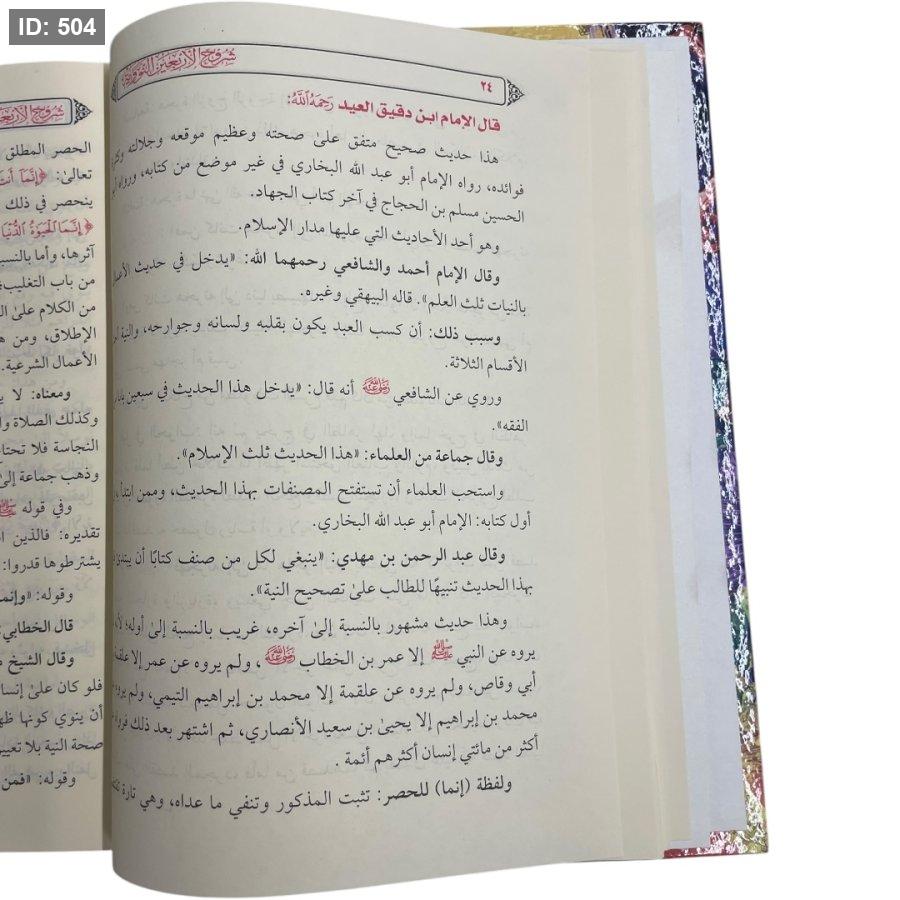 ID: 504
شروح الأربعين النووية
٢٤
قال الإمام ابن دقيق العيد رَحِمَهُ اللَّهُ:
هذا حديث صحيح متفق علىٰ صحته وعظيم موقعه وجلالته
فوائده، رواه الإمام أبو عبد الله البخاري في غير موضع من كتابه، ورواه
الحسين مسلم بن الحجاج في آخر كتاب الجهاد.
وهو أحد الأحاديث التي عليها مدار الإسلام.
وقال الإمام أحمد والشافعي رحمهما الله: «يدخل في حديث
بالنيات ثلث العلم». قاله البيهقي وغيره.
وسبب ذلك: أن كسب العبد يكون بقلبه ولسانه وجوارحه، والنية
الأقسام الثلاثة.
وروي عن الشافعي رَضِيَ اللَّهُ عَنْهُ أنه قال: «يدخل هذا الحديث في سبعين
الفقه».
وقال جماعة من العلماء: «هذا الحديث ثلث الإسلام».
واستحب العلماء أن تستفتح المصنفات بهذا الحديث، وممن ابتدأ
أول كتابه: الإمام أبو عبد الله البخاري.
وقال عبد الرحمن بن مهدي: «ينبغي لكل من صنف كتابًا أن
بهذا الحديث تنبيهًا للطالب علىٰ تصحيح النية».
وهذا حديث مشهور بالنسبة إلىٰ آخره، غريب بالنسبة إلىٰ أوله؛
يروه عن النبي ﷺ إلا عمر بن الخطاب رَضِيَ اللَّهُ عَنْهُ، ولم يروه عن عمر إلا
أبي وقاص، ولم يروه عن علقمة إلا محمد بن إبراهيم التيمي، ولم
محمد بن إبراهيم إلا يحيىٰ بن سعيد الأنصاري، ثم اشتهر بعد ذلك
أكثر من مائتي إنسان أكثرهم أئمة .
ولفظة (إنما) للحصر: تثبت المذكور وتنفي ما عداه، وهي تارة
شروح
الحصر المطلق
تعالىٰ: ﴿إِنَّمَا
ينحصر في ذلك
﴿إِنَّمَا الْحَيَوٰةُ الدُّنْيَا
آثرها، وأما
من باب التغليب؛
من الكلام علىٰ
الإطلاق، ومن
الأعمال الشرعية.
ومعناه: لا
وكذلك الصلاة
النجاسة فلا
وذهب جماعة
وفي قوله
تقديره: فالذين
يشترطوها قدروا:
وقوله: «وإنما
قال الخطابي
وقال الشيخ
فلو كان علىٰ
أن ينوي كونها
صحة النية بلا
وقوله: «فمن